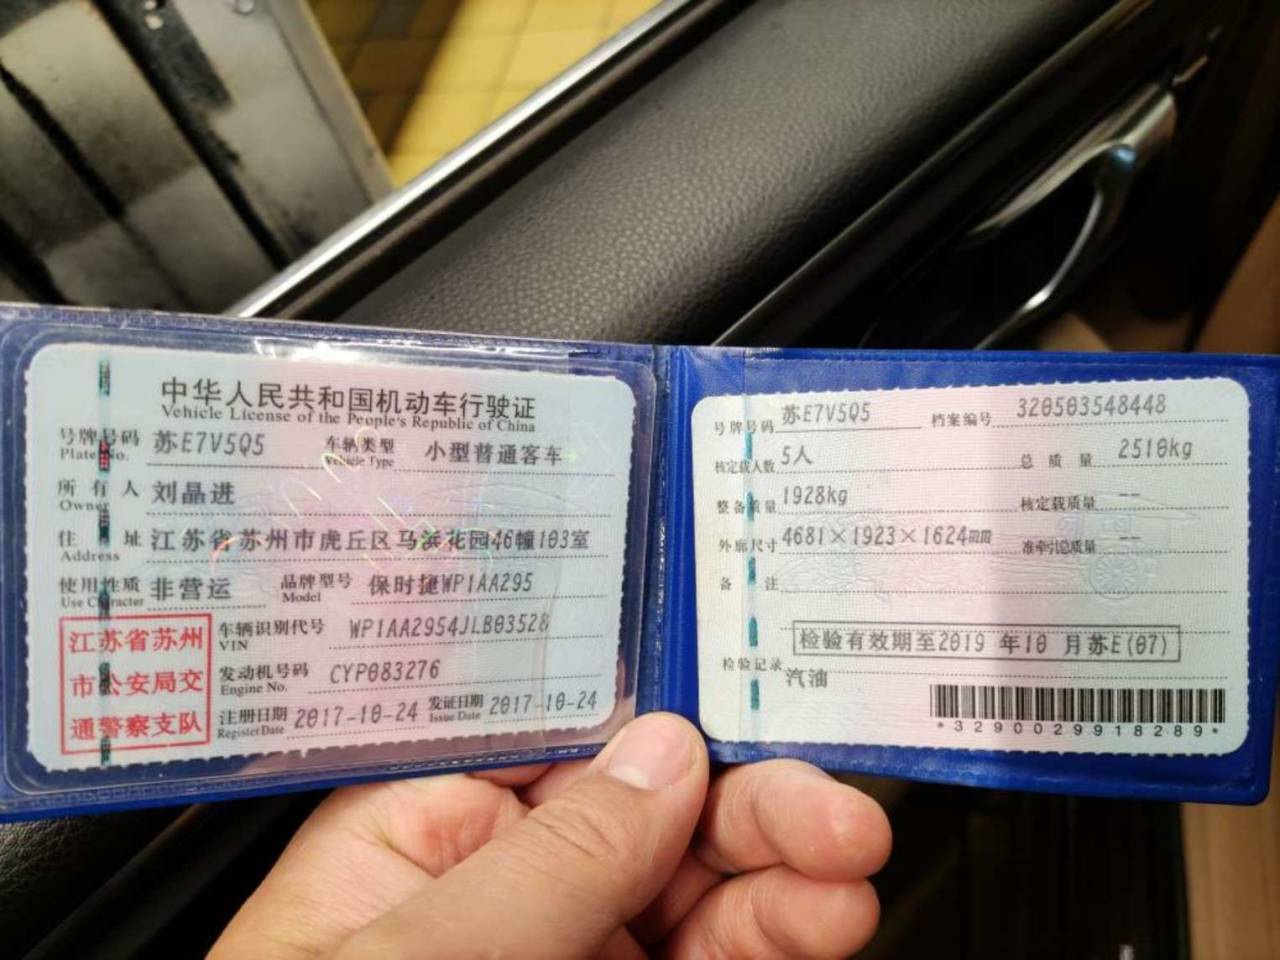 中华人民共和国机动车行驶证
Vehicle License of the People's Republic of China
号牌号码 苏E7V5Q5 车辆类型 小型普通客车
Plate No. Vehicle Type
所有人 刘晶进
Owner
住址 江苏省苏州市虎丘区马浜花园46幢103室
Address
使用性质 非营运 品牌型号 保时捷WP1AA295
Use Character Model
江苏省苏州
市公安局交
通警察支队
车辆识别代号 WP1AA2954JLB03528
VIN
发动机号码 CYP083276
Engine No.
注册日期 2017-10-24 发证日期 2017-10-24
Register Date Issue Date
号牌号码 苏E7V5Q5 档案编号 320503548448
核定载人数 5人 总质量 2510kg
整备质量 1928kg 核定载质量 --
外廓尺寸 4681×1923×1624mm 准牵引总质量 --
备注
检验有效期至2019年10月苏E(07)
检验记录
汽油
*3290029918289*